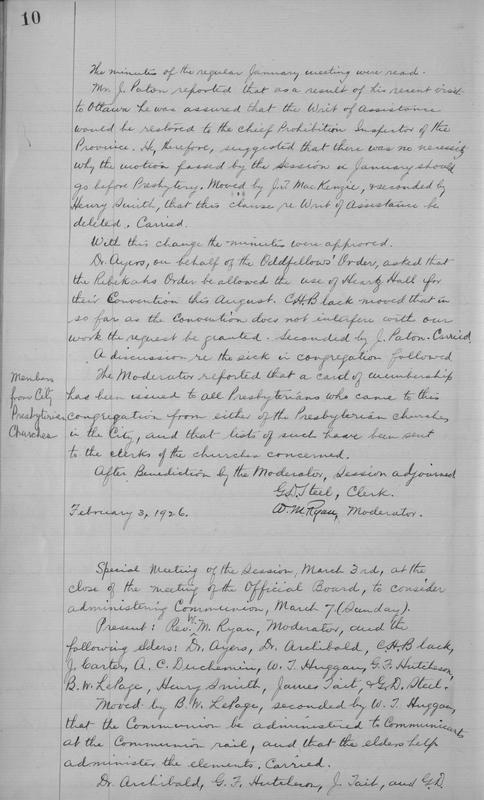 10
The minutes of the regular January meeting were read.
Mr. J. Paton reported that as a result of his recent visit
to Ottawa he was assured that the Writ of Assistance
would be restored to the Chief Prohibition Inspector of the
Province. He, therefore, suggested that there was no necessity
why the motion passed by the Session in January should
go before Presbytery. Moved by J.T. MacKenzie, & seconded by
Henry Smith, that this clause re Writ of Assistance be
deleted. Carried.
With this change the minutes were approved.
Dr. Ayers, on behalf of the Oddfellows' Order, asked that
the Rebekahs Order be allowed the use of Heartz Hall for
their Convention this August. C.H. Black moved that in
so far as the Convention does not interfere with our
work the request be granted. Seconded by J. Paton. Carried
A discussion re the sick in congregation followed
Members
from City
Presbyterian
Churches
The Moderator reported that a card of membership
has been issued to all Presbyterians who came to this
congregation from either of the Presbyterian churches
in the City, and that lists of such have been sent
to the clerks of the churches concerned.
After Benediction by the Moderator, Session adjourned
G.D. Steel, Clerk.
February 3, 1926. W.M. Ryan, Moderator.
Special Meeting of the Session, March 3rd, at the
close of the meeting of the Official Board, to consider
administering Communion, March 7 (Sunday).
Present: Rev. W. M. Ryan, Moderator, and the
following elders: Dr. Ayers, Dr. Archibald, C.H. Black,
J. Carter, A. C. Duchemin, W. T. Huggan, G.F. Hutcheson,
B.W. LePage, Henry Smith, James Tait, & G.D. Steel.
Moved by B.W. LePage, seconded by W. T. Huggan,
that the Communion be administered to Communicants
at the Communion rail, and that the elders help
administer the elements. Carried.
Dr. Archibald, G. F. Hutcheson, J. Tait, and G.D.